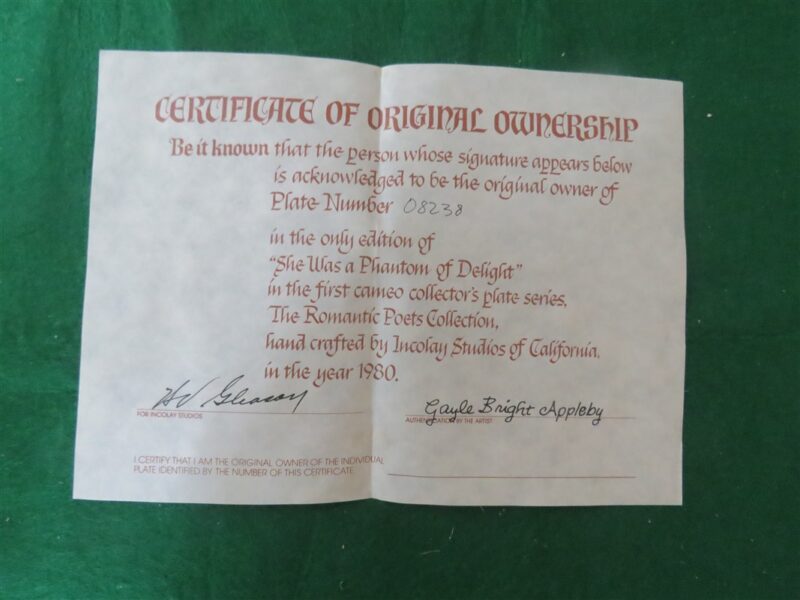 CERTIFICATE OF ORIGINAL OWNERSHIP
Be it known that the person whose signature appears below
is acknowledged to be the original owner of
Plate Number 08238
in the only edition of
"She Was a Phantom of Delight"
in the first cameo collector's plate series,
The Romantic Poets Collection,
hand crafted by Incolay Studios of California,
in the year 1980.
Gleason
FOR INCOLAY STUDIOS
Gayle Bright Appleby
AUTHENTICATION BY THE ARTIST
I CERTIFY THAT I AM THE ORIGINAL OWNER OF THE INDIVIDUAL
PLATE IDENTIFIED BY THE NUMBER OF THIS CERTIFICATE